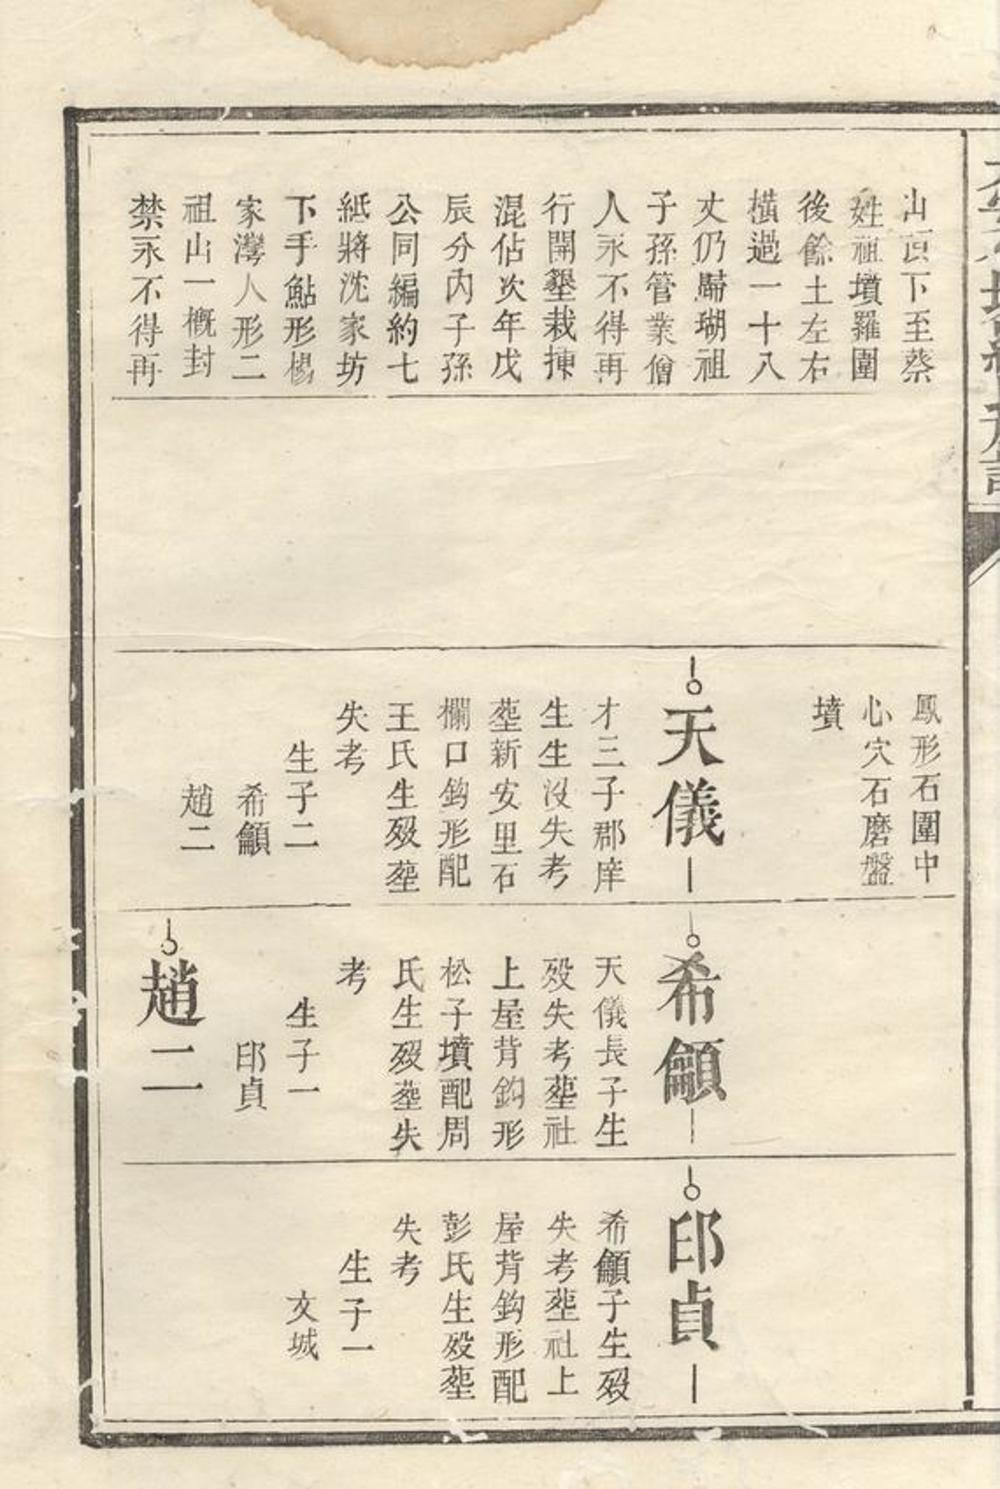 山頂下至蔡
姓祖墳羅圍
後餘土左右
橫過一十八
丈仍歸瑚祖
子孫管業僧
人永不得再
行開墾栽揀
混佔次年戊
辰分內子孫
公同編約七
紙將沈家坊
下手鮎形楊
家灣人形二
祖山一概封
禁永不得再
鳳形石圍中
心穴石磨盤
墳
天儀
才三子郡庠
生生沒失考
塟新安里石
欄口鈎形配
王氏生歿塟
失考
生子二
希龥
趙二
希龥
天儀長子生
歿失考塟社
上屋背鈎形
松子墳配周
氏生歿塟失
考
生子一
邱貞
趙二
邱貞
希龥子生歿
失考塟社上
屋背鈎形配
彭氏生歿塟
失考
生子一
文城